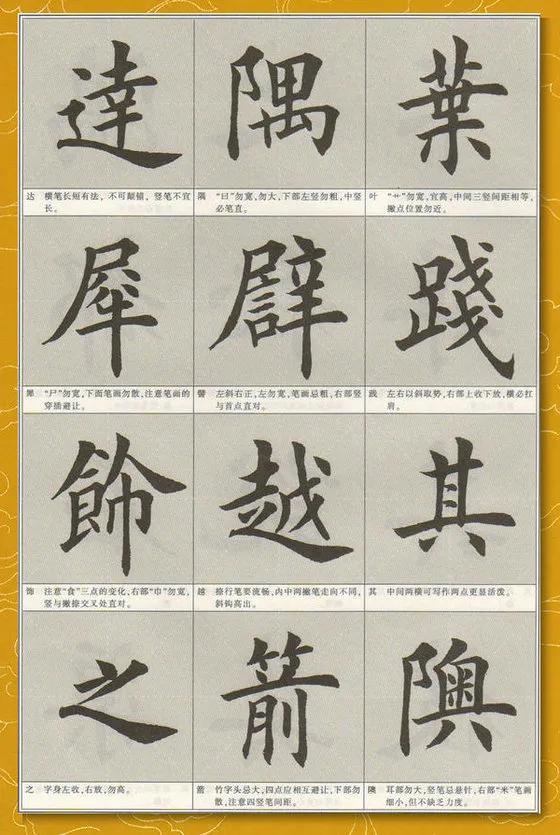 達 隅 葉
达 横笔长短有法，不可颠错，竖笔不宜
长。
隅 “曰”勿宽，勿大，下部左竖勿粗，中竖
必笔直。
叶 “艹”勿宽，宜高，中间三竖间距相等，
撇点位置勿近。
犀 譬 踐
犀 “尸”勿宽，下面笔画勿散，注意笔画的
穿插避让。
左斜右正，左勿宽，笔画忌粗，右部竖
与首点直对。
践 左右以斜取势，右部上收下放，横必扛
肩。
飾 越 其
饰 注意“食”三点的变化，右部“巾”勿宽，
竖与撇捺交叉处直对。
越 捺行笔要流畅，内中两撇笔走向不同，
斜钩高出。
其 中间两横可写作两点更显活泼。
之 箭 隩
之 字身左收，右放，勿高。
箭 竹字头忌大，四点应相互避让，下部勿
散，注意四竖笔间距。
隩 耳部勿大，竖笔忌悬针，右部“米”笔画
细小，但不缺乏力度。